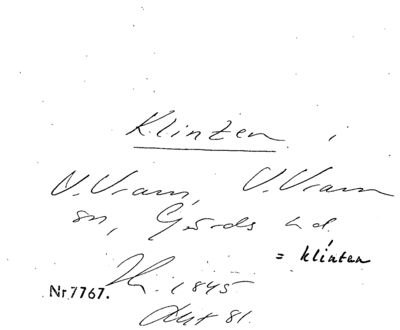 Klinten i
V. Vram, V. Vram
sn, Gärds hd.
= klinten
1845
Nr 7767.
Akt 81.